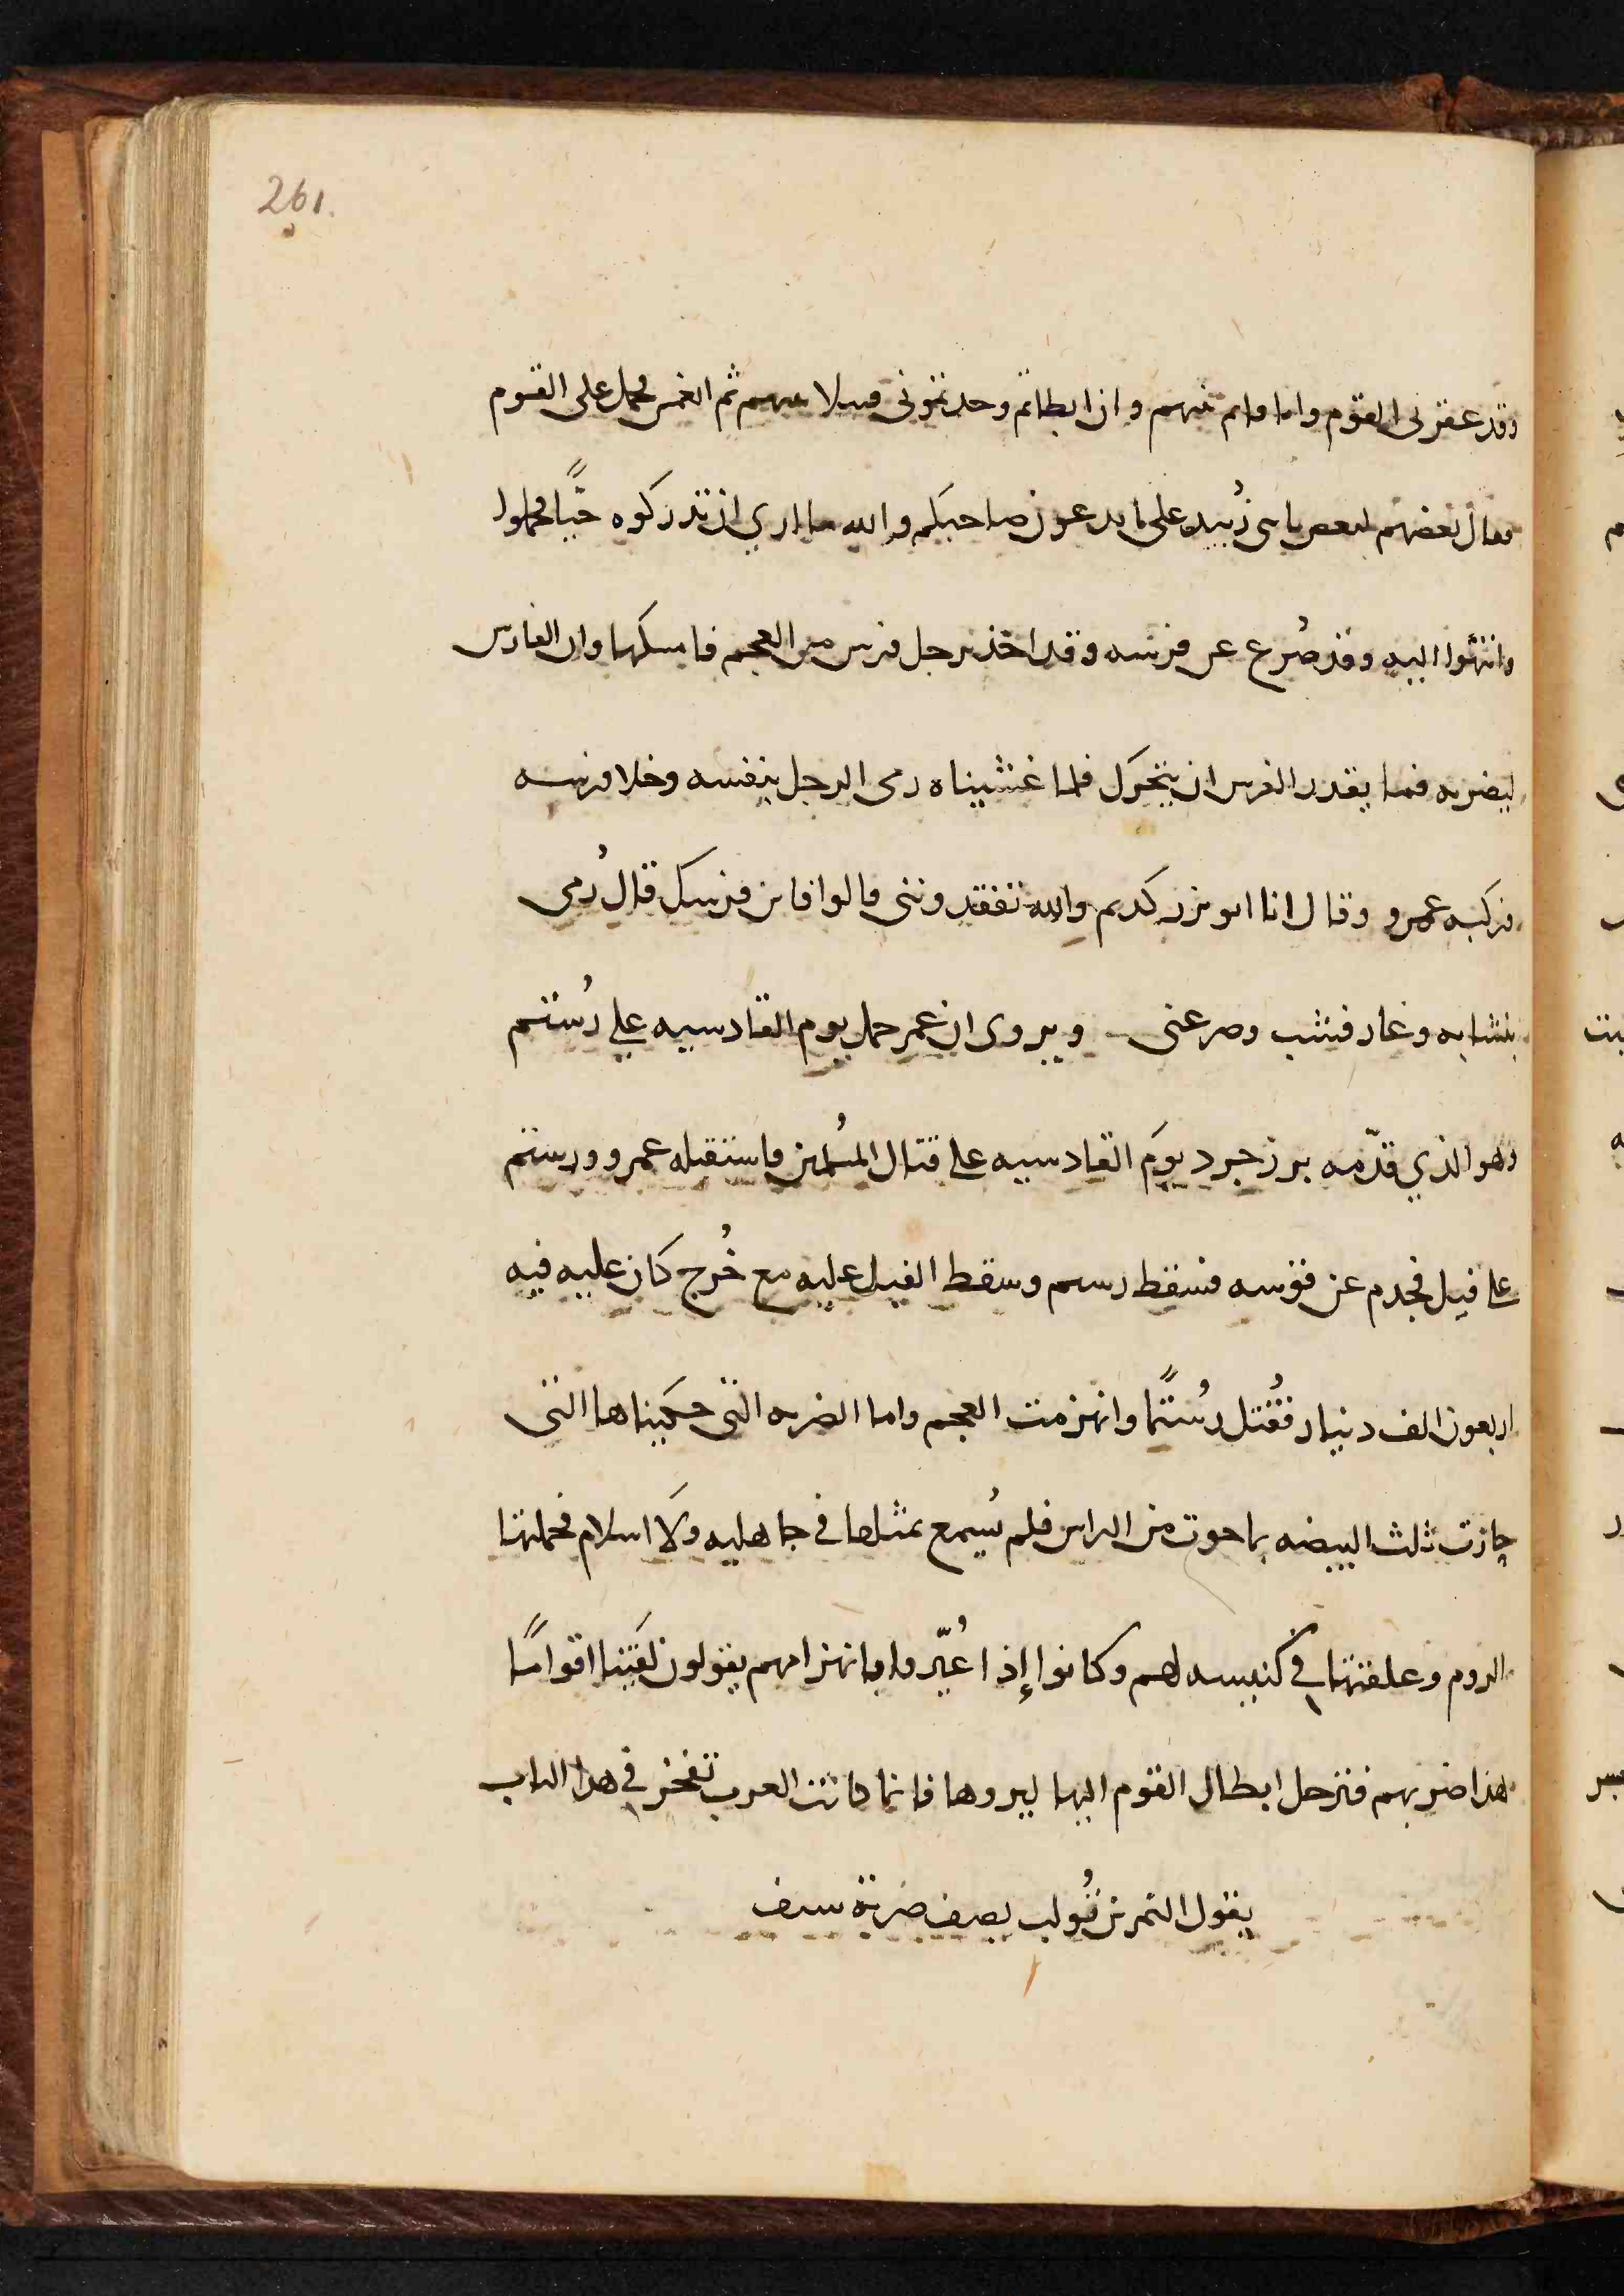 261.
وقد عقر بى القوم وانا قائم بينهم وان ابطاتم وجدتمونى قتيلا بينهم ثم انغمس فحمل على القوم
فقال بعضهم لبعض يا بنى زُبيد على ما تدعون صاحبكم والله ما ارى ان تدركوه حيًّا فحملوا
وانتهوا اليه وقد صُرع عن فرسه وقد اخذ برجل فرس من العجم فامسكها وان الفارس
ليضربه فما يقدر الفرس ان يتحرك فلما غشيناه رمى الرجل بنفسه وخلا فرسه
فركبه عمرو وقال انا ابو ثور كدتم والله تفقدوننى قالوا فاين فرسك قال رُمى
بنشابه وغار فشب وصرعنى ويروى ان عمر حمل يوم القادسيه على رُستم
وهو الذي قدّمه يزدجرد يومَ القادسيه على قتال المُسلمين فاستقبله عمرو ورستم
على فيل فجدم عرقوبه فسقط رستم وسقط الفيل عليه مع خُرج كان عليه فيه
اربعون الف دينار فقُتل رُستمًا وانهزمت العجم واما الضربه التى حكيناها التى
جازت ثلث البيضه بما حوت من الراس فلم يُسمع بمثلها في جاهليه ولَا اسلام فحملتها
الروم وعلقتها في كنيسه لهم وكانوا إذا عُيّروا بانهزامهم يقولون لَقينا اقوامًا
هذا ضربهم فترحل ابطال القوم اليها ليروها فانما كانت العرب تفخر في هذا الباب
يقول النمر بن تُولب يصف ضربة سيف